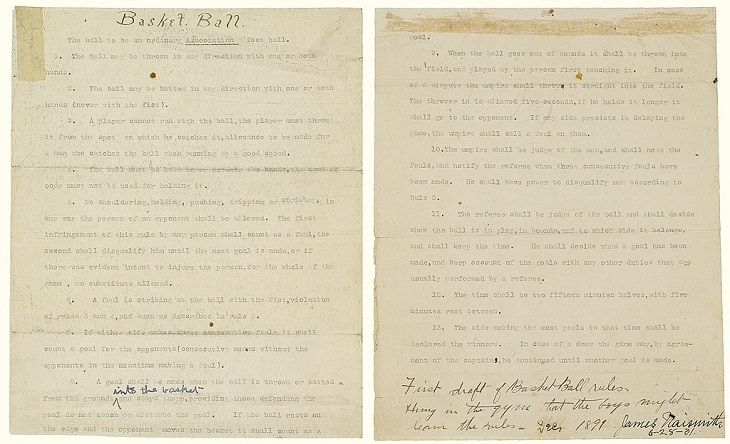 Basket Ball.
The ball to be an ordinary Association foot ball.
1. The ball may be thrown in any direction with one or both
hands.
2. The ball may be batted in any direction with one or both
hands (never with the fist).
3. A player cannot run with the ball, the player must throw
it from the spot on which he catches it, allowance to be made for
a man who catches the ball when running at a good speed.
4. The ball must be held in or between the hands, the arms or
body must not be used for holding it.
5. No shouldering, holding, pushing, tripping or striking in
any way the person of an opponent shall be allowed. The first
infringement of this rule by any person shall count as a foul, the
second shall disqualify him until the next goal is made, or if
there was evident intent to injure the person, for the whole of the
game, no substitute allowed.
6. A foul is striking at the ball with the fist, violation
of rules 3 and 4, and such as described in rule 5.
7. If either side makes three consecutive fouls it shall
count a goal for the opponents (consecutive means without the
opponents in the meantime making a foul).
8. A goal shall be made when the ball is thrown or batted
into the basket
from the grounds and stays there, providing those defending the
goal do not touch or disturb the goal. If the ball rests on
the edge and the opponent moves the basket it shall count as a
goal.
9. When the ball goes out of bounds it shall be thrown into
the field, and played by the person first touching it. In case
of a dispute the umpire shall throw it straight into the field.
The thrower in is allowed five seconds, if he holds it longer it
shall go to the opponent. If any side presists in delaying the
game, the umpire shall call a foul on them.
10. The umpire shall be judge of the men, and shall note the
fouls, and notify the referee when three consecutive fouls have
been made. He shall have power to disqualify men according to
Rule 5.
11. The referee shall be judge of the ball and shall decide
when the ball is in play, in bounds, and to which side it belongs,
and shall keep the time. He shall decide when a goal has been
made, and keep account of the goals with any other duties that are
usually performed by a referee.
12. The time shall be two fifteen minutes halves, with five
minutes rest between.
13. The side making the most goals in that time shall be
declared the winners. In case of a draw the game may, by agree-
ment of the captains, be continued until another goal is made.
First draft of Basket Ball rules.
Hung in the gym that the boys might
learn the rules - Dec. 1891 James Naismith
6-28-31.